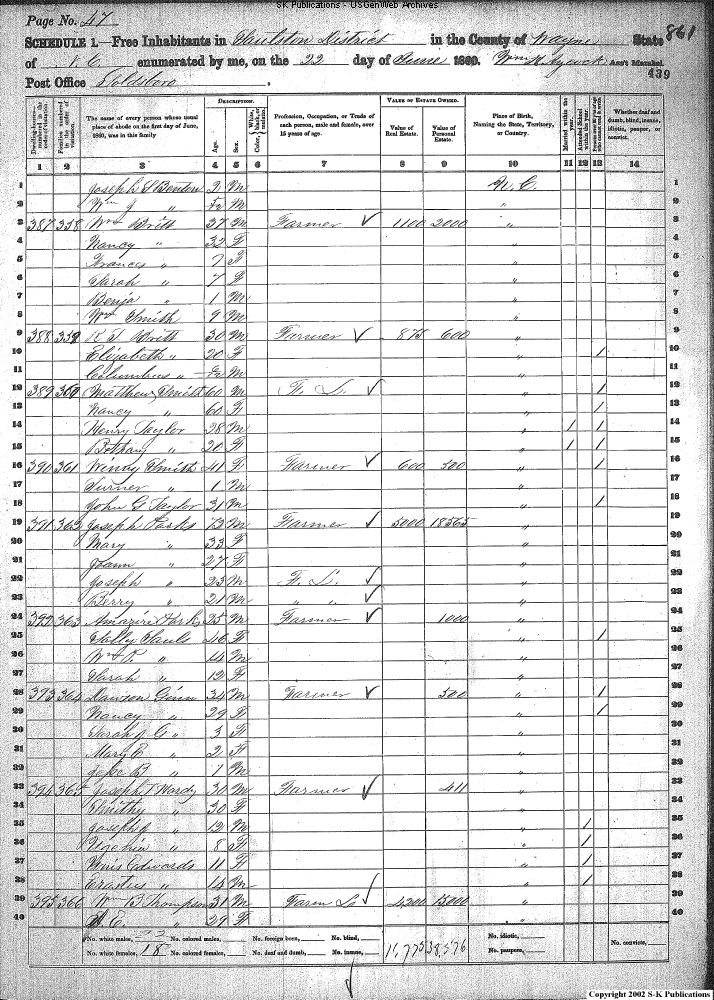 SK Publications - USGenWeb Archives
Page No. 47
861
SCHEDULE 1.—Free Inhabitants in Saulston District in the County of Wayne State
of N. C. enumerated by me, on the 22 day of June 1860. Wm H. Aycock Ass't Marshal.
439
Post Office Goldsboro.
DESCRIPTION. VALUE OF ESTATE OWNED.
Dwelling-houses numbered in the order of visitation. Families numbered in the order of visitation. The name of every person whose usual place of abode on the first day of June, 1860, was in this family Age. Sex. Color, White, black, or mulatto. Profession, Occupation, or Trade of each person, male and female, over 15 years of age. Value of Real Estate. Value of Personal Estate. Place of Birth, Naming the State, Territory, or Country. Married within the year. Attended School within the year. Whether deaf and dumb, blind, insane, idiotic, pauper, or convict.
1 2 3 4 5 6 7 8 9 10 11 12 13 14
1 Joseph S Benton 2 M N. C. 1
2 Wm J " M " 2
3 387 358 Wm Britt 37 M Farmer ✓ 1100 2000 " 3
4 Nancy " 32 F " 4
5 Frances " 7 F " 5
6 Sarah " 7 F " 6
7 Benja " 1 M " 7
8 Wm Smith 9 M " 8
9 388 359 R S Britt 30 M Farmer ✓ 875 600 " 9
10 Elizabeth " 20 F " / 10
11 Columbus " M " 11
12 389 360 Matthew Smith 60 M F. L. ✓ " / 12
13 Nancy " 60 F " / 13
14 Henry Taylor 28 M " / / 14
15 Bethany " 20 F " / / 15
16 390 361 Wendy Smith 41 F Farmer ✓ 600 500 " / 16
17 Turner " 1 M " 17
18 John G Taylor 31 M " / 18
19 391 362 Joseph Parks 73 M Farmer ✓ 5000 18565 " 19
20 Mary " 33 F " 20
21 Joann " 27 F " 21
22 Joseph " 23 M F. L. ✓ " 22
23 Berry " 21 M " " ✓ " 23
24 392 363 Park 25 M Farmer ✓ 1000 " 24
25 Sally Sauls 46 F " / 25
26 Wm R. " 14 M " 26
27 Sarah " 12 F " 27
28 393 364 Dawson Ginn 34 M Farmer ✓ 500 " / 28
29 Nancy " 29 F " / 29
30 Sarah J. C. " 3 F " 30
31 Mary E " 2 F " 31
32 Jesse B " 1 M " 32
33 394 365 Joseph T Hardy 30 M Farmer ✓ 411 " 33
34 Smithy " 30 F " 34
35 Joseph J " 12 M " / 35
36 " 8 F " / 36
37 Edwards 11 F " / 37
38 Erastus " 14 M " / 38
39 395 366 Wm B Thompson 31 M ✓ 4200 15000 " 39
40 E. " 29 F " 40
No. white males, 22 No. colored males, No. foreign born, No. blind, No. idiotic, No. convicts,
No. white females, 18 No. colored females, No. deaf and dumb, No. insane, 11,775 38,576 No. paupers,
Copyright 2002 S-K Publications